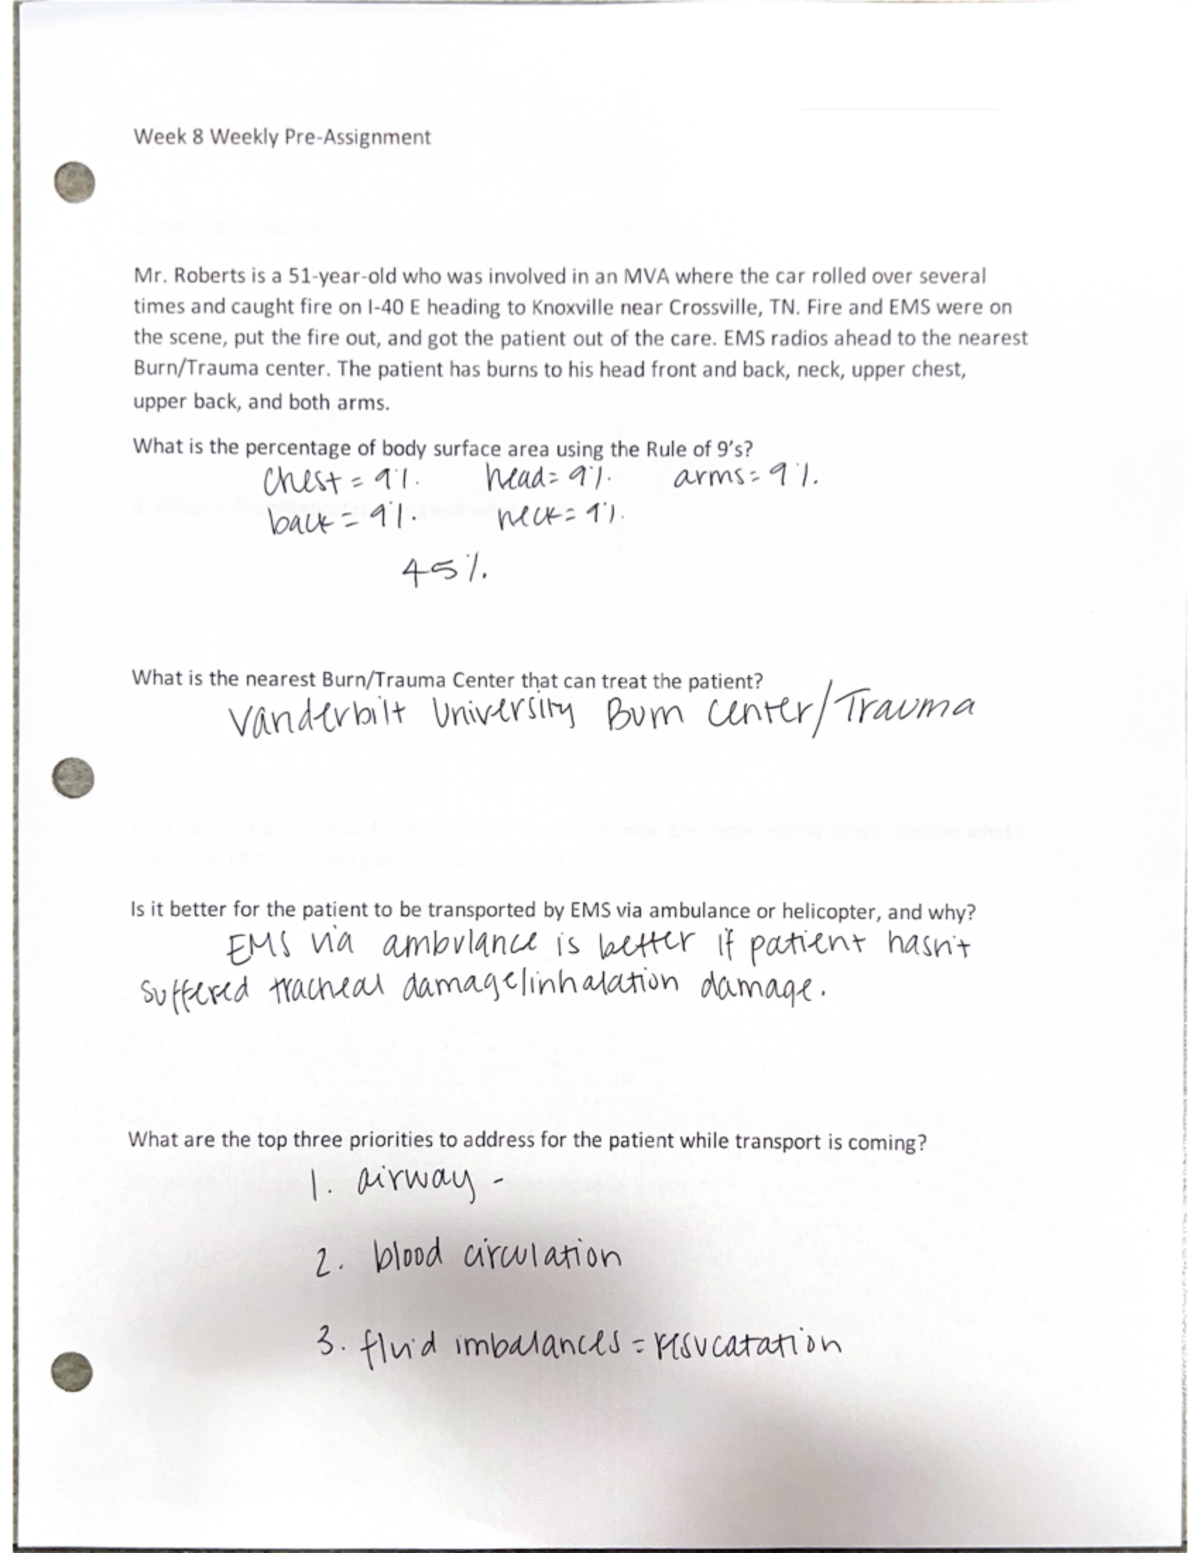 Week 8 Weekly Pre-Assignment
Mr. Roberts is a 51-year-old who was involved in an MVA where the car rolled over several
times and caught fire on I-40 E heading to Knoxville near Crossville, TN. Fire and EMS were on
the scene, put the fire out, and got the patient out of the care. EMS radios ahead to the nearest
Burn/Trauma center. The patient has burns to his head front and back, neck, upper chest,
upper back, and both arms.
What is the percentage of body surface area using the Rule of 9's?
chest = 9%. head = 9%. arms = 9%.
back = 9%. neck = 9%.
45%.
What is the nearest Burn/Trauma Center that can treat the patient?
Vanderbilt University Burn Center/Trauma
Is it better for the patient to be transported by EMS via ambulance or helicopter, and why?
EMS via ambulance is better if patient hasn't
suffered tracheal damage/inhalation damage.
What are the top three priorities to address for the patient while transport is coming?
1. airway -
2. blood circulation
3. fluid imbalances = resucatation